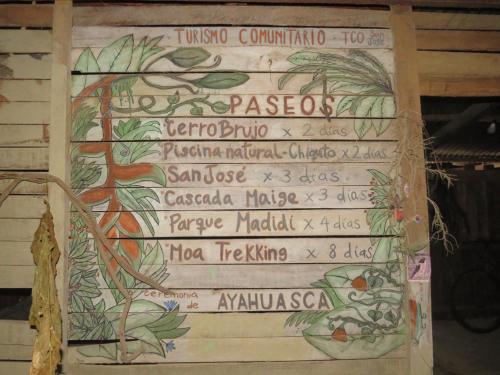 TURISMO COMUNITARIO - TCO San José
PASEOS
Cerro Brujo x 2 días
Piscina natural - Chiguto x 2 días
San José x 3 días
Cascada Maige x 3 días
Parque Madidi x 4 días
Moa Trekking x 8 días
ceremonia de AYAHUASCA